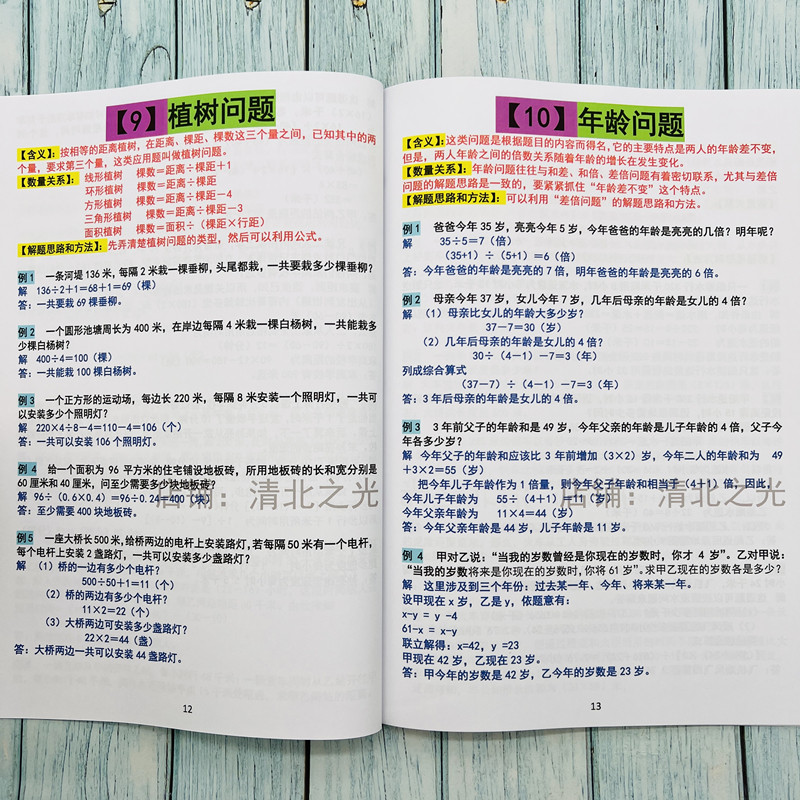 【9】植树问题
【含义】：按相等的距离植树，在距离、棵距、棵数这三个量之间，已知其中的两
个量，要求第三个量，这类应用题叫做植树问题。
【数量关系】： 线形植树 棵数＝距离÷棵距＋1
环形植树 棵数＝距离÷棵距
方形植树 棵数＝距离÷棵距－4
三角形植树 棵数＝距离÷棵距－3
面积植树 棵数＝面积÷（棵距×行距）
【解题思路和方法】：先弄清楚植树问题的类型，然后可以利用公式。
例1 一条河堤 136 米，每隔 2 米栽一棵垂柳，头尾都栽，一共要栽多少棵垂柳？
解 136÷2＋1＝68＋1＝69（棵）
答：一共要栽 69 棵垂柳。
例2 一个圆形池塘周长为 400 米，在岸边每隔 4 米栽一棵白杨树，一共能栽多
少棵白杨树？
解 400÷4＝100（棵）
答：一共能栽 100 棵白杨树。
例3 一个正方形的运动场，每边长 220 米，每隔 8 米安装一个照明灯，一共可
以安装多少个照明灯？
解 220×4÷8－4＝110－4＝106（个）
答：一共可以安装 106 个照明灯。
例4 给一个面积为 96 平方米的住宅铺设地板砖，所用地板砖的长和宽分别是
60 厘米和 40 厘米，问至少需要多少块地板砖？
解 96÷（0.6×0.4）＝96÷0.24＝400（块）
答：至少需要 400 块地板砖。
例5 一座大桥长 500 米，给桥两边的电杆上安装路灯，若每隔 50 米有一个电杆，
每个电杆上安装 2 盏路灯，一共可以安装多少盏路灯？
解 （1）桥的一边有多少个电杆？
500÷50＋1＝11（个）
（2）桥的两边有多少个电杆？
11×2＝22（个）
（3）大桥两边可安装多少盏路灯？
22×2＝44（盏）
答：大桥两边一共可以安装 44 盏路灯。
12
【10】年龄问题
【含义】：这类问题是根据题目的内容而得名，它的主要特点是两人的年龄差不变，
但是，两人年龄之间的倍数关系随着年龄的增长在发生变化。
【数量关系】： 年龄问题往往与和差、和倍、差倍问题有着密切联系，尤其与差倍
问题的解题思路是一致的，要紧紧抓住“年龄差不变”这个特点。
【解题思路和方法】：可以利用“差倍问题”的解题思路和方法。
例1 爸爸今年 35 岁，亮亮今年 5 岁，今年爸爸的年龄是亮亮的几倍？明年呢？
解 35÷5＝7（倍）
（35+1）÷（5+1）＝6（倍）
答：今年爸爸的年龄是亮亮的 7 倍，明年爸爸的年龄是亮亮的 6 倍。
例2 母亲今年 37 岁，女儿今年 7 岁，几年后母亲的年龄是女儿的 4 倍？
解 （1）母亲比女儿的年龄大多少岁？
37－7＝30（岁）
（2）几年后母亲的年龄是女儿的 4 倍？
30÷（4－1）－7＝3（年）
列成综合算式
（37－7）÷（4－1）－7＝3（年）
答：3 年后母亲的年龄是女儿的 4 倍。
例3 3 年前父子的年龄和是 49 岁，今年父亲的年龄是儿子年龄的 4 倍，父子今
年各多少岁？
解 今年父子的年龄和应该比 3 年前增加（3×2）岁，今年二人的年龄和为 49
＋3×2＝55（岁）
把今年儿子年龄作为 1 倍量，则今年父子年龄和相当于（4＋1）倍，因此，
今年儿子年龄为 55÷（4＋1）＝11（岁）
今年父亲年龄为 11×4＝44（岁）
答：今年父亲年龄是 44 岁，儿子年龄是 11 岁。
例4 甲对乙说：“当我的岁数曾经是你现在的岁数时，你才 4 岁”。乙对甲说：
“当我的岁数将来是你现在的岁数时，你将 61 岁”。求甲乙现在的岁数各是多少？
解 这里涉及到三个年份：过去某一年、今年、将来某一年。
设甲现在 x 岁，乙是 y，依题意有：
x-y = y -4
61-x = x-y
联立解得：x=42，y =23
甲现在 42 岁，乙现在 23 岁。
答：甲今年的岁数是 42 岁，乙今年的岁数是 23 岁。
13
店铺：清北之光
店铺：清北之光